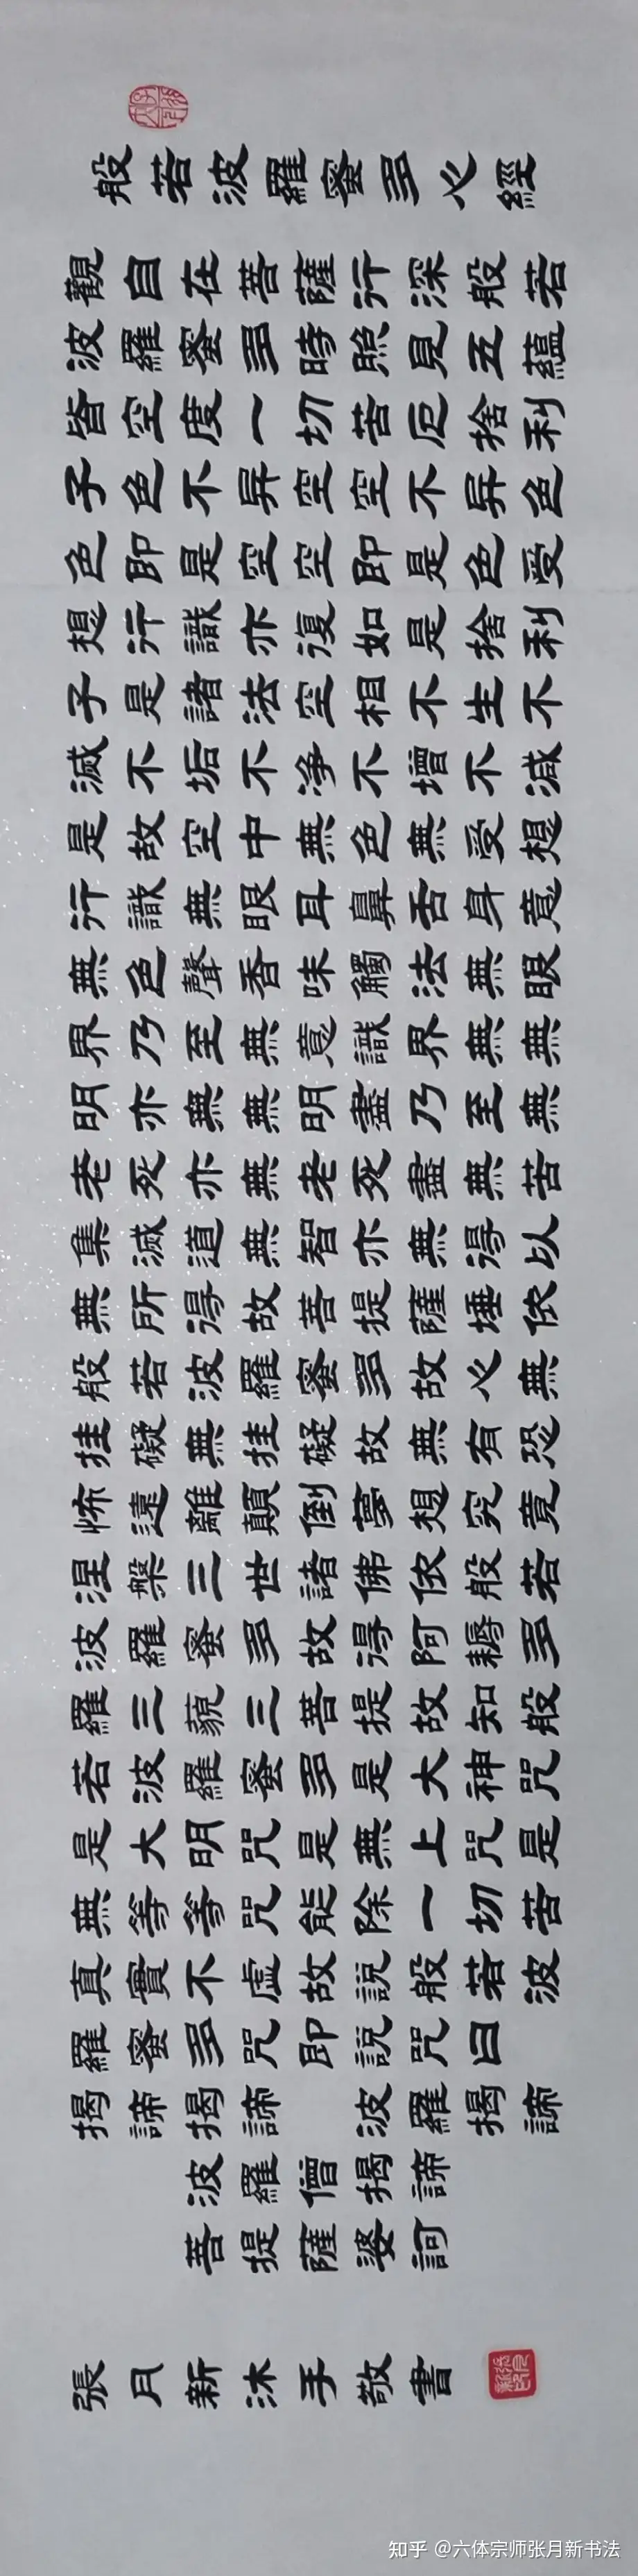 般若波羅蜜多心經
觀自在菩薩行深般若
波羅蜜多時照見五蘊
皆空度一切苦厄捨利
子色不异空空不异色
色即是空空即是色受
想行識亦復如是捨利
子是諸法空相不生不
滅不垢不净不增不减
是故空中無色無受想
行識無眼耳鼻舌身意
無色聲香味觸法無眼
界乃至無意識界無無
明亦無無明盡乃至無
老死亦無老死盡無苦
集滅道無智亦無得以
無所得故菩提薩埵依
般若波羅蜜多故心無
挂礙無挂礙故無有恐
怖遠離顛倒夢想究竟
涅槃三世諸佛依般若
波羅蜜多故得阿耨多
羅三藐三菩提故知般
若波羅蜜多是大神咒
是大明咒是無上咒是
無等等咒能除一切苦
真實不虛故說般若波
羅蜜多咒即說咒曰
揭諦揭諦 波羅揭諦
波羅僧揭諦
菩提薩婆訶
張月新沐手敬書
知乎 @六体宗师张月新书法